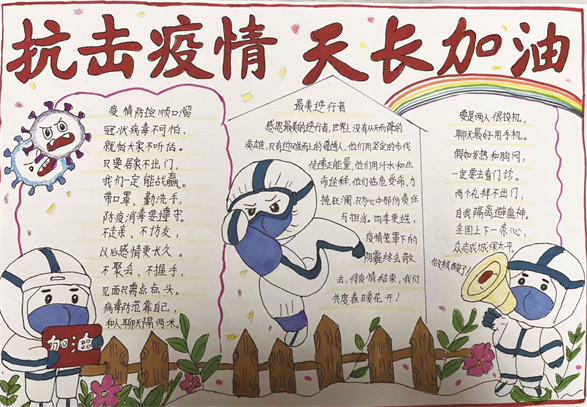 抗击疫情 天长加油
疫情防控顺口溜
冠状病毒不可怕，
就怕大家不听话。
只要居家不出门，
我们一定能战赢。
带口罩、勤洗手，
防疫消毒要遵守。
不走亲、不访友，
以后感情更长久。
不聚会、不握手，
见面只需点点头。
病毒防范靠自己，
和人聊天隔两米。
加油
最美逆行者
感恩最美的逆行者，世界上没有从天而降的
英雄，只有你难而上的普通人，他们用坚定的步伐
传递正能量，他们用汗水和生
命在拼，他们临危受命，力
挽狂澜，只为心中那份责任
与担当。四季更迭，
疫情笼罩下的
阴霾终会散
去。待疫情结束，我们
共度春暖花开！
要是两人很投机，
聊天最好用手机。
假如发热和胸闷，
一定要去看门诊。
两个礼拜不出门，
自我隔离避血神。
全国上下一条心，
众志成城保太平。
做核酸了！